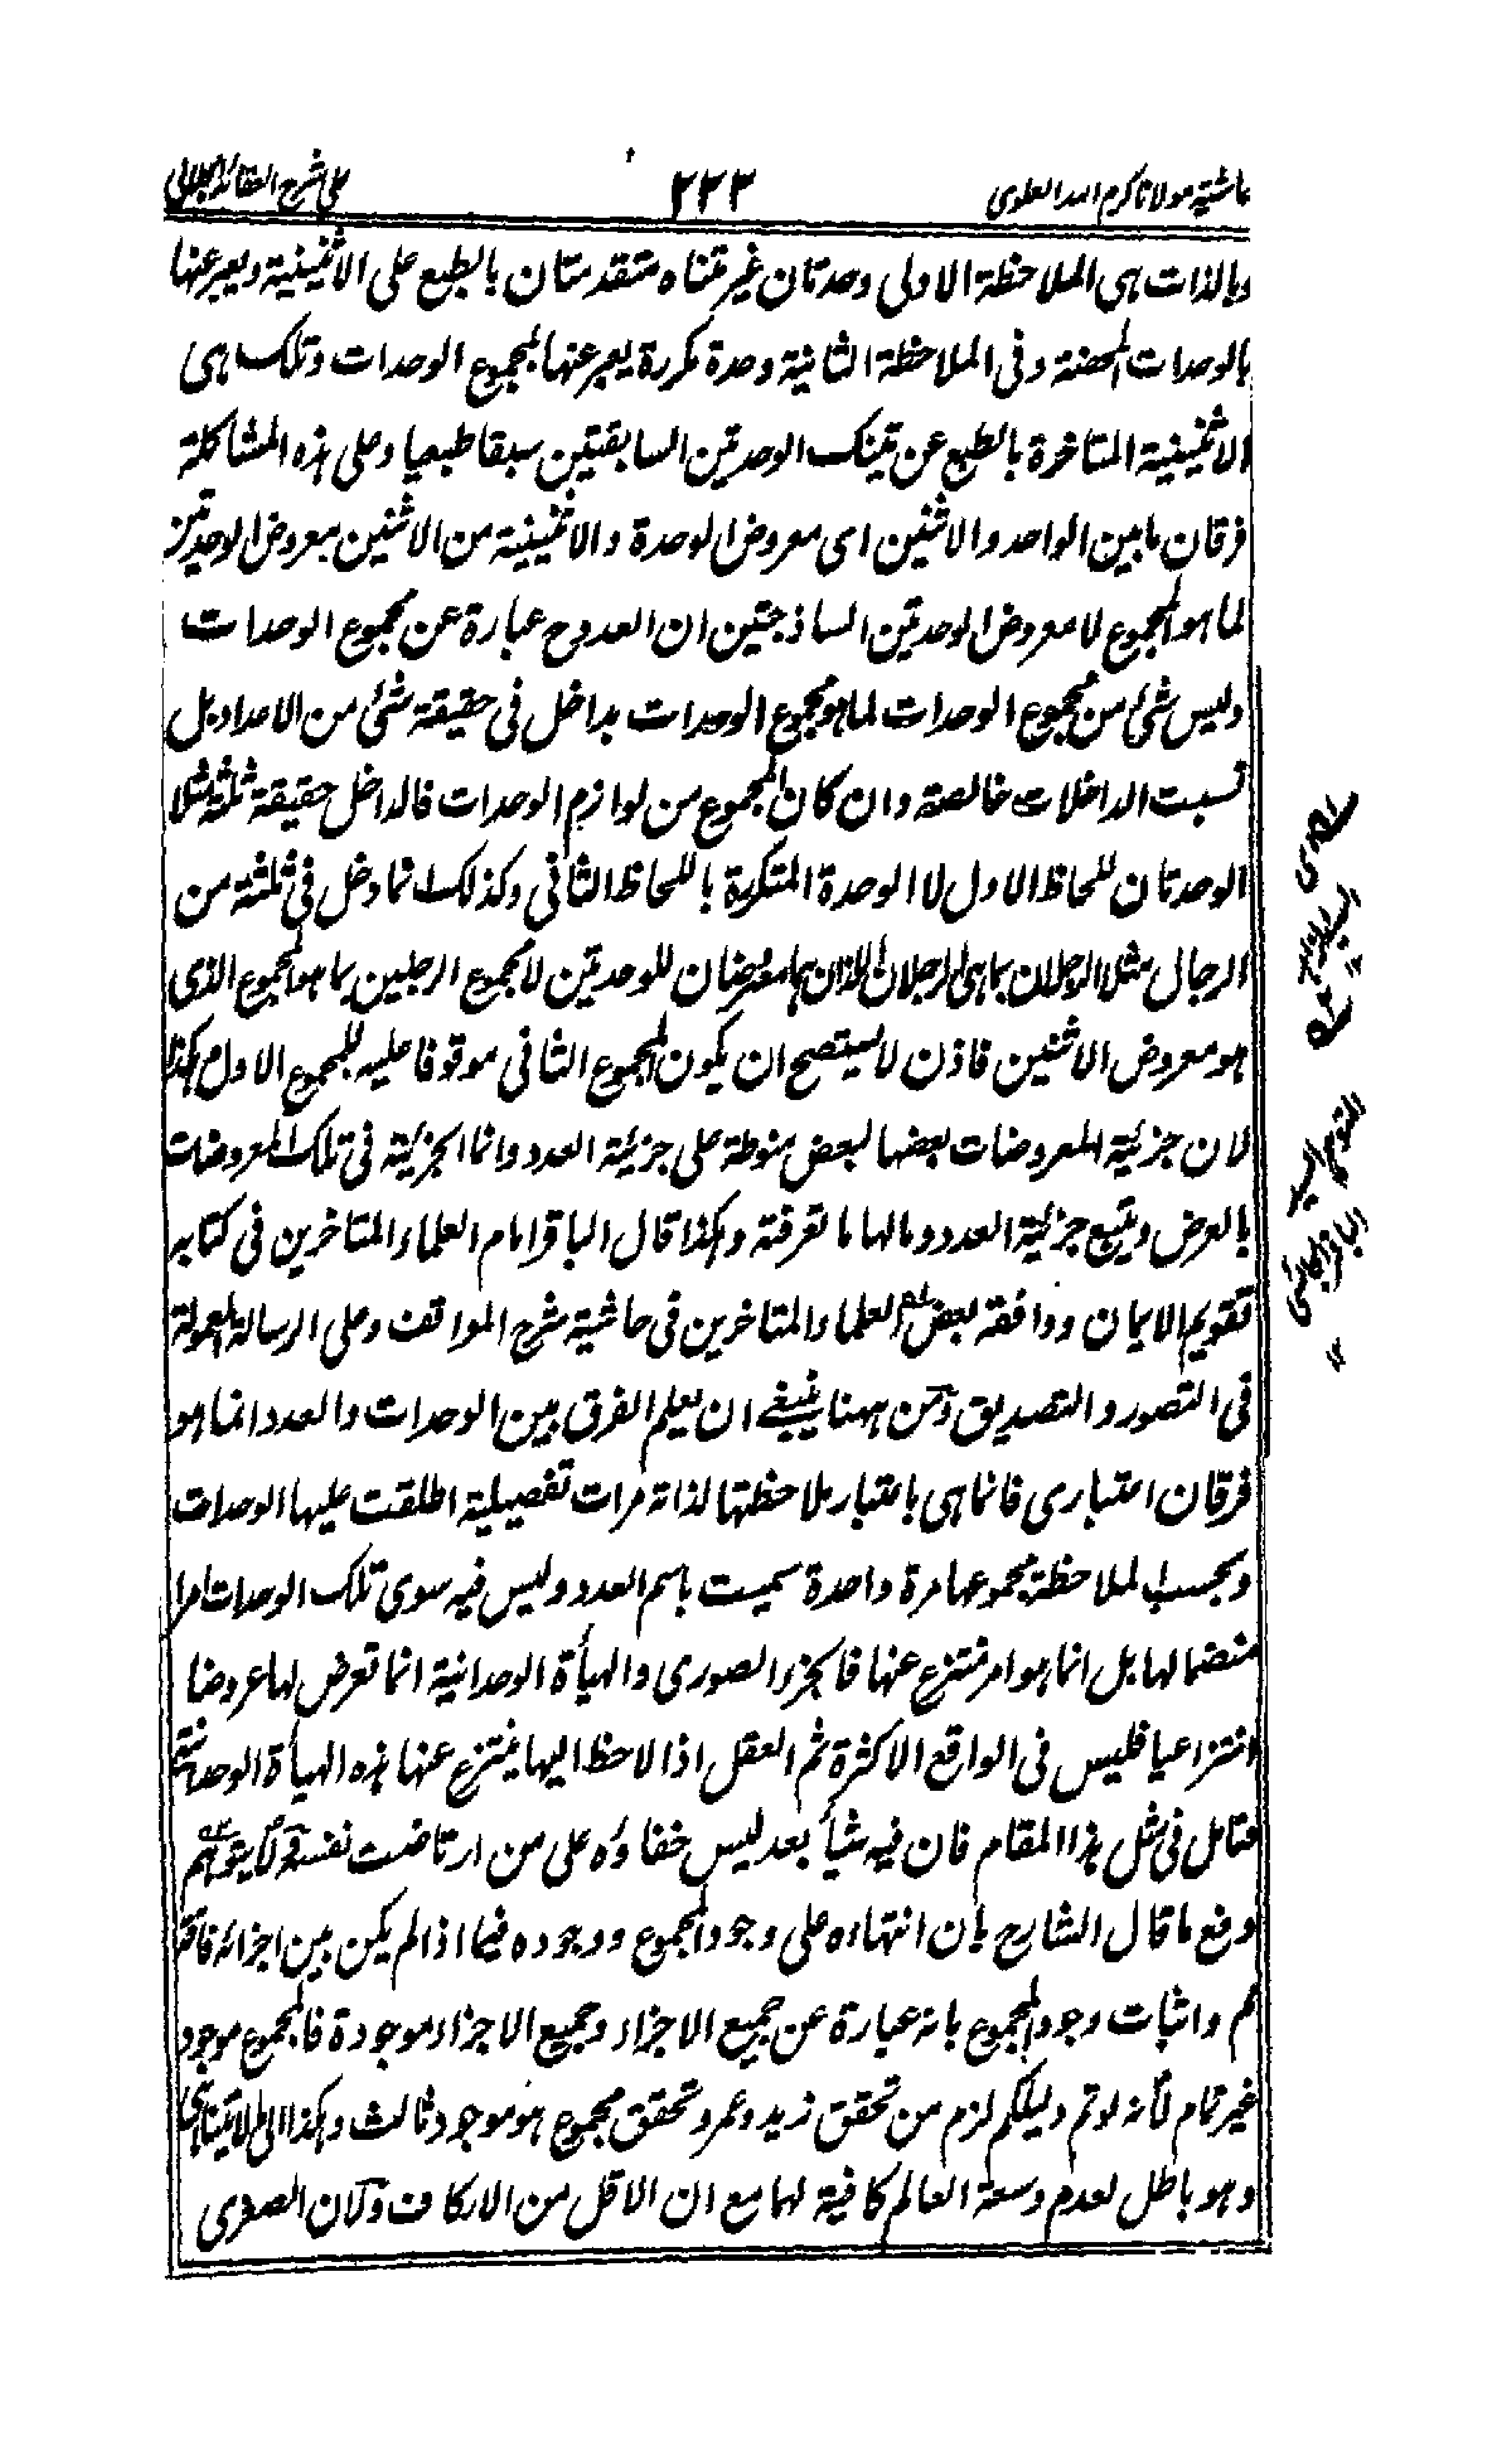 حاشیة مولانا کرم الله العلوی ۲۲۳ علی شرح العقائد الجلالی
وبالذات ہی الملاحظة الاولی وحدتان غیر متناه متقدمتان بالطبع علی الاثنینیة ویعبر عنها
بالوحدات المحضة وفی الملاحظة الثانیة وحدة مکررة یعبر عنها بمجموع الوحدات وتلک ہی
الاثنینیة المتاخرة بالطبع عن تینک الوحدتین السابقتین سبقا طبعیا وعلی ہذہ المشاکلة
فرقان ما بین الواحد والاثنین ای معروض الوحدة والاثنینیة من الاثنین بمعروض الوحدتین
لما ہو المجموع لا معروض الوحدتین الساذجتین ان العدد ح عبارة عن مجموع الوحدات
ولیس شئ من مجموع الوحدات لما ہو مجموع الوحدات بداخل فی حقیقة شئ من الاعداد بل
نسبت الداخلات خالصة وان کان المجموع من لوازم الوحدات فالداخل حقیقة ثلثة مثلا
الوحدتان للحاظ الاول لا الوحدة المتکررة باللحاظ الثانی وکذلک انما دخل فی ثلثة من
الرجال مثلا الرجلان بما ہی الرجلان اللذان ہما معروضان للوحدتین لا مجموع الرجلین بما ہو المجموع الذی
ہو معروض الاثنین فاذن لا یستصح ان یکون المجموع الثانی موقوفا علیه للمجموع الاول ہکذا
لان جزئیة المعروضات بعضها لبعض منوطة علی جزئیة العدد وانما الجزئیة فی تلک المعروضات
بالعرض ویتبع جزئیة العدد ومالها ما تعرفته وہکذا قال الباقر امام العلماء المتاخرین فی کتابه
تقویم الایمان ووافقه بعض العلماء المتاخرین فی حاشیة شرح المواقف وعلی الرسالة المعمولة
فی التصور والتصدیق ومن ہہنا ینبغی ان یعلم الفرق بین الوحدات والعدد انما ہو
فرقان اعتباری فانما ہی باعتبار ملاحظتها لذاته مرات تفصیلیة اطلقت علیها الوحدات
وبحسب الملاحظة مجموعها مرة واحدة سمیت باسم العدد ولیس فیه سوی تلک الوحدات امرا
منضما لها بل انما ہو امر منتزع عنها فالجزء الصوری والہیأة الوحدانیة انما تعرض لها عروضا
انتزاعیا فلیس فی الواقع الا کثرة ثم العقل اذا لاحظ الیها ینتزع عنها ہذہ الہیأة الوحدانیة
فتامل فی مثل ہذا المقام فان فیه شیأ بعد لیس خفاؤہ علی من ارتاضت نفسه قوله لا یتوہم
دفع ما قال الشارح بان انتهاءہ علی وجود المجموع ووجودہ فیما اذا لم یکن بین اجزائه فاقة
مم واثبات وجود المجموع بانه عبارة عن جمیع الاجزاء وجمیع الاجزاء موجودة فالمجموع موجود
غیر تمام لانه لو تم دلیلکم لزم من تحقق زید وعمرو تحقق مجموع ہو موجود ثالث وہکذا الی ما لا یتناہی
وہو باطل لعدم وسعة العالم کافیة لها مع ان الاقل من الارکاف ولان الصغری